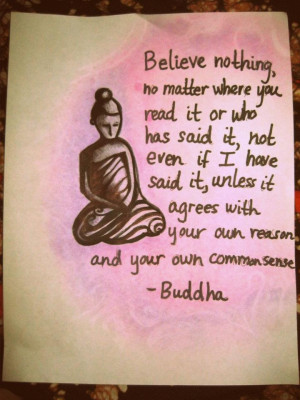 Believe nothing,
no matter where you
read it or who
has said it, not
even if I have
said it, unless it
agrees with
your own reason
and your own common sense
-Buddha